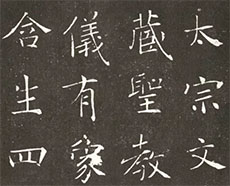 太宗文
蔵聖教
儀有象
含生四